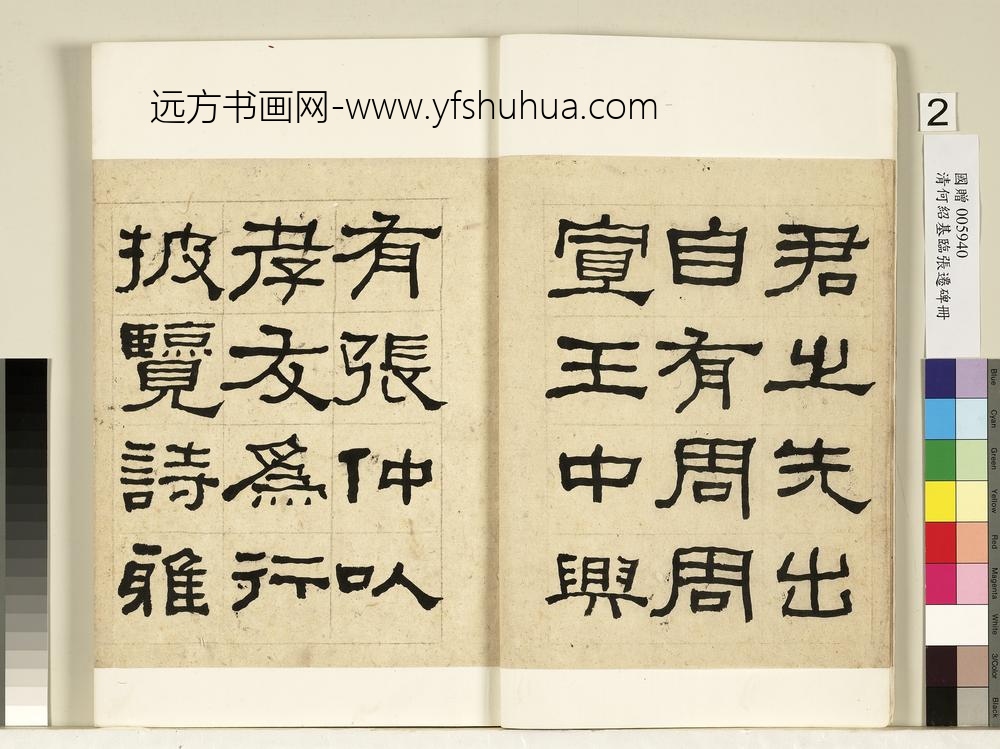 远方书画网-www.yfshuhua.com
2
國贈 005940
清何紹基臨張遷碑冊
君之先出
自有周周
宣王中興
有張仲以
孝友為行
披覽詩雅
Blue
Cyan
Green
Yellow
Red
Magenta
White
3/Color
Black